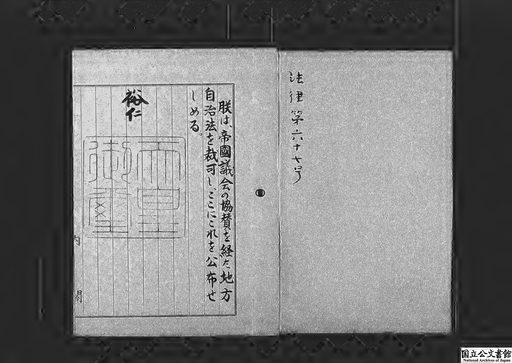 法律第六十七号
朕は、帝國議会の協賛を経た地方
自治法を裁可し、ここにこれを公布せ
しめる。
裕仁
天皇
御璽
内閣
国立公文書館
National Archives of Japan